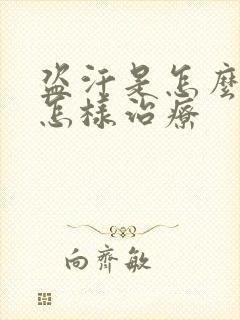 盗汗是怎麼
怎樣治療
向齊敏